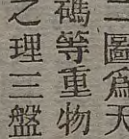 二圖爲天
碼等重物
之理三盤